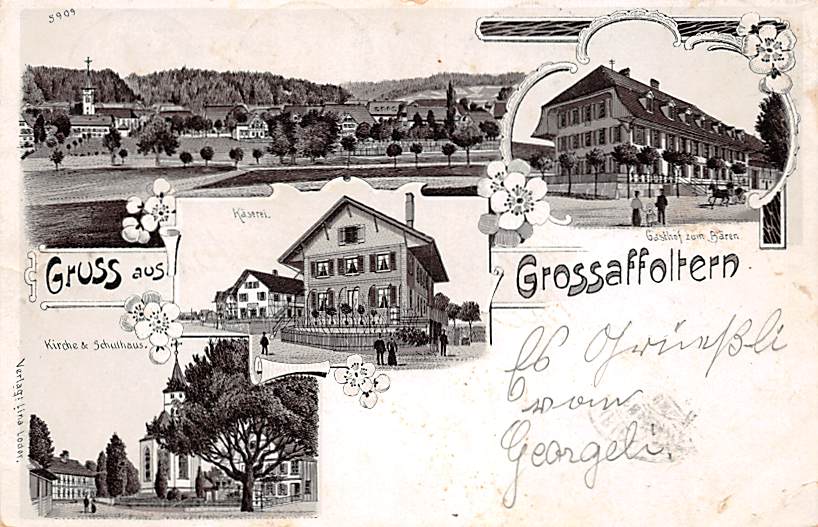 5909
Gasthof zum Bären.
Käserei.
Gruss aus Grossaffoltern
Kirche & Schulhaus.
Verlag: Lina Loder.
Es Grüeßli
vom
Georgeli.